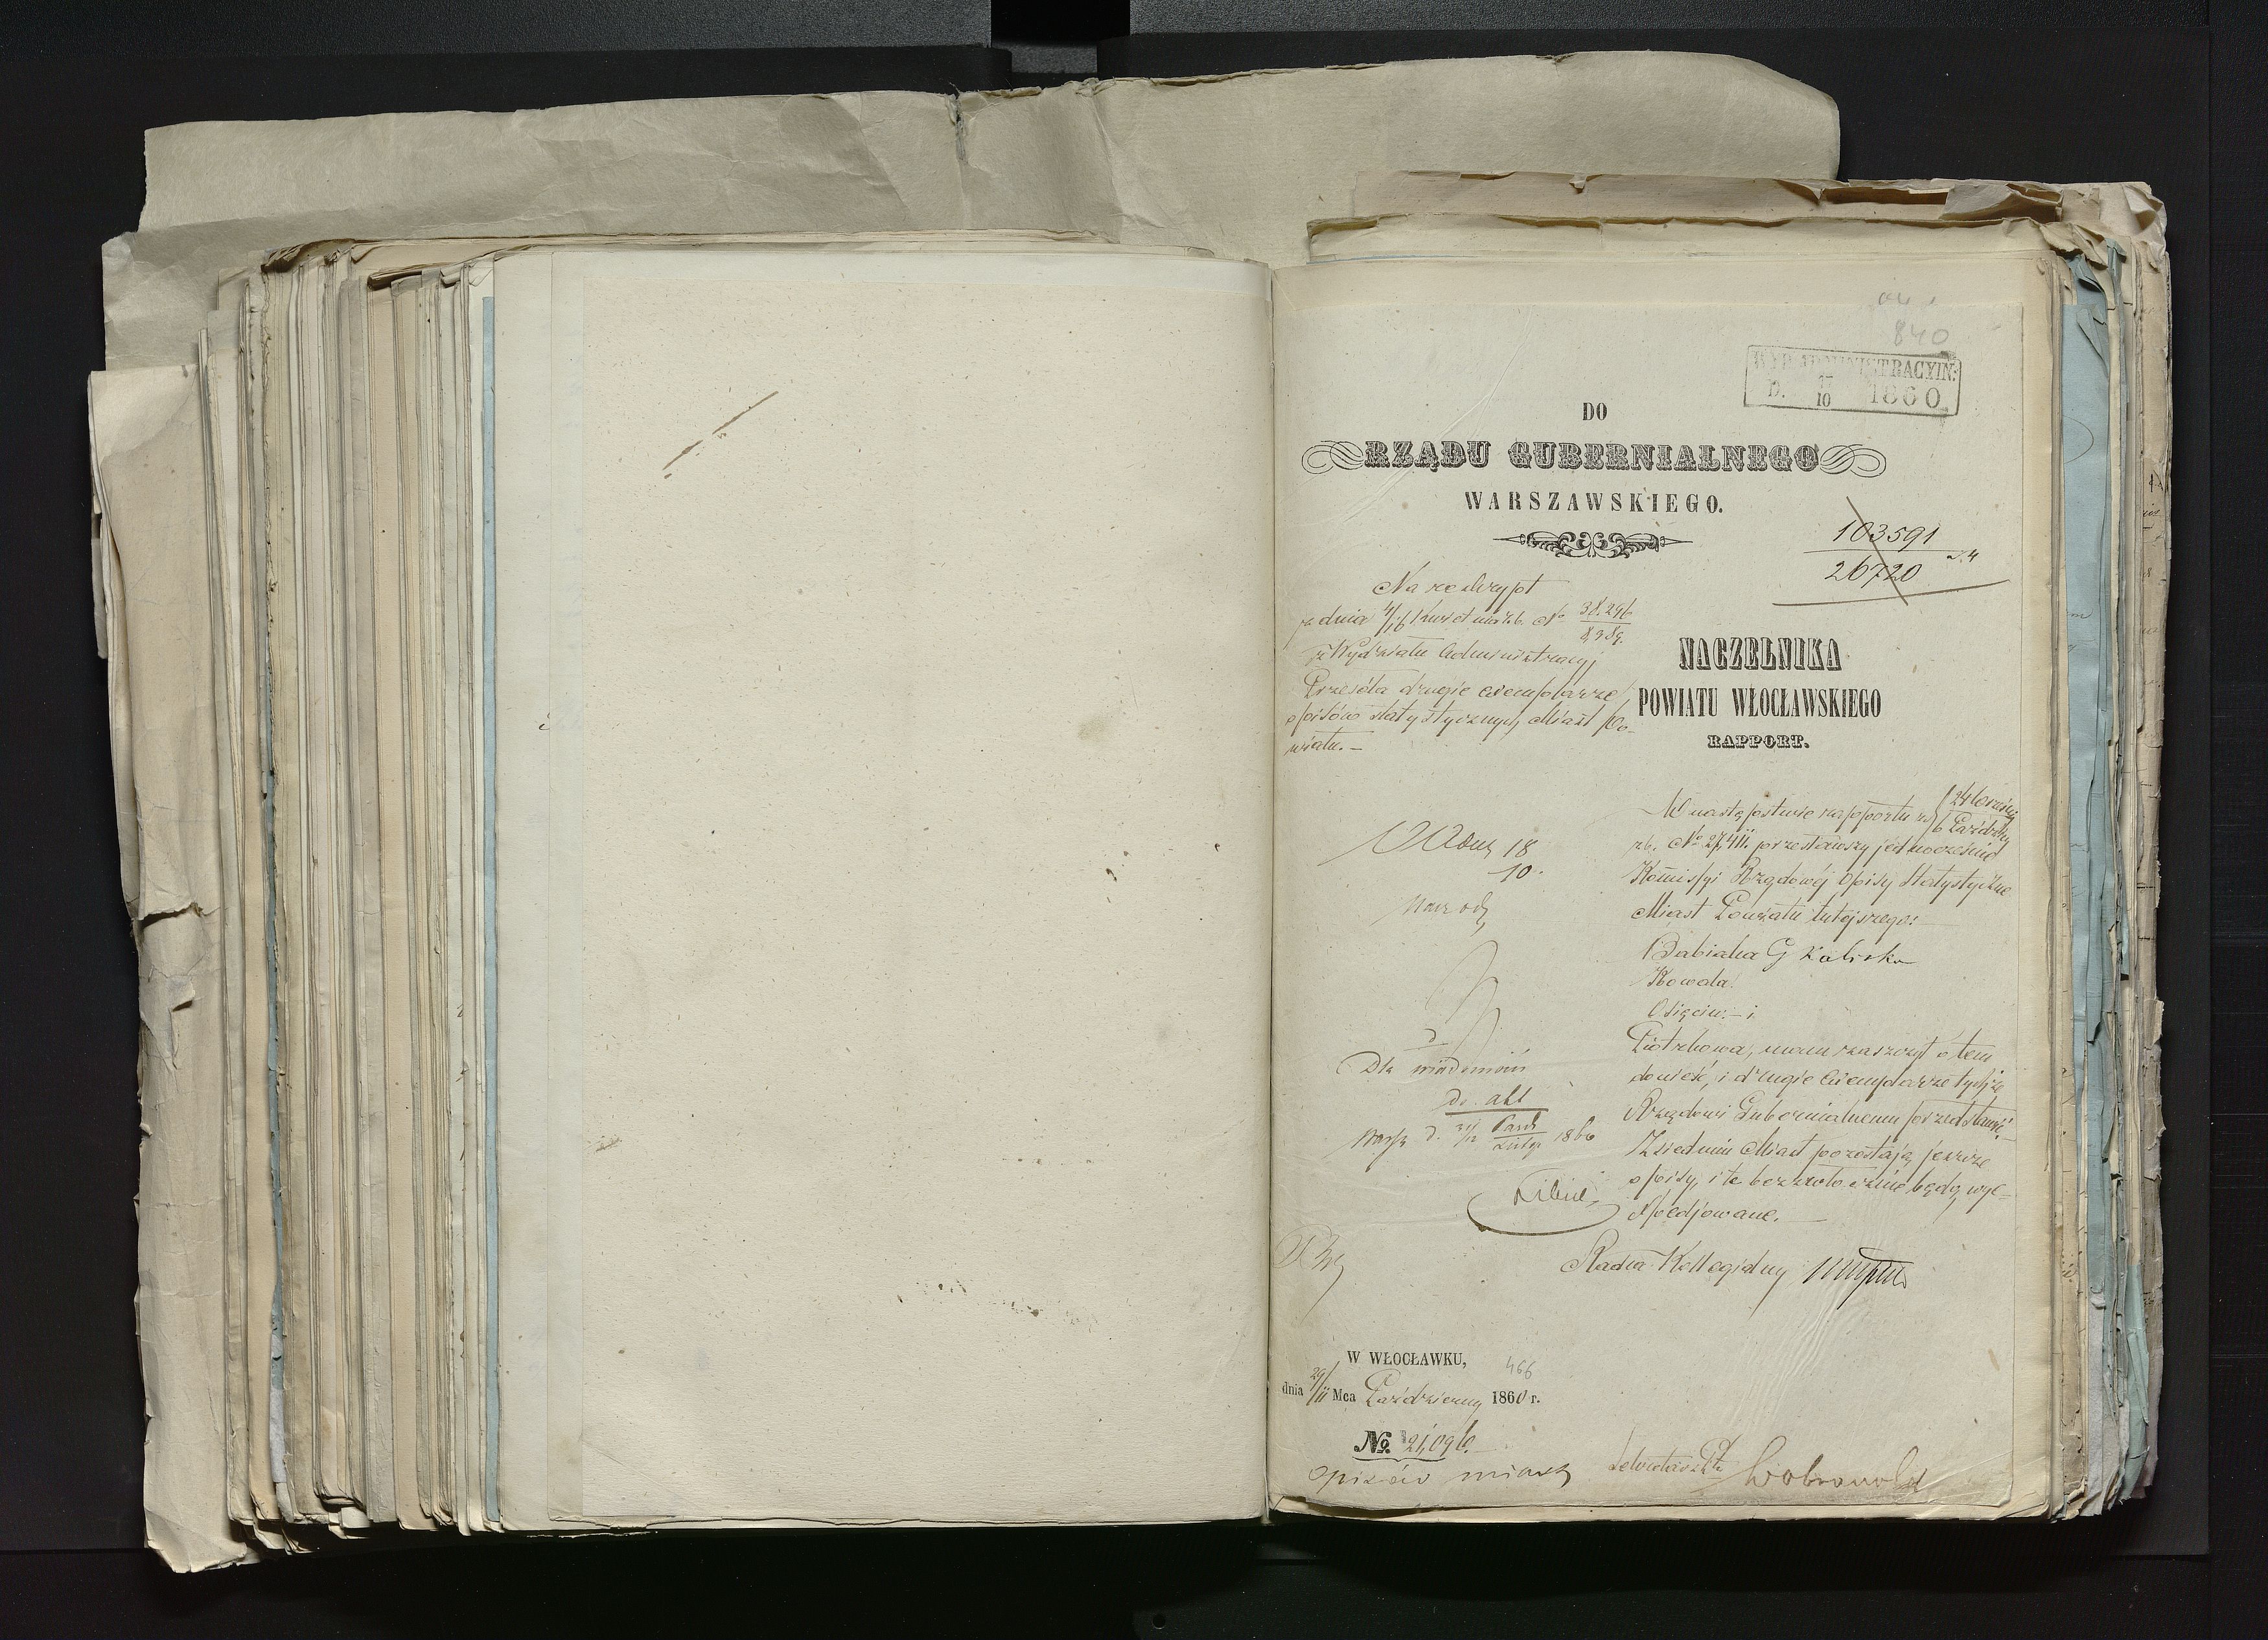 840
WYD: ADMINISTRACYJN:
D. 17/10 1860.
DO
RZĄDU GUBERNIALNEGO
WARSZAWSKIEGO.
103591
26720
Na reskrypt
z dnia 4/16 Kwietnia rb. No 38,296
8,389.
z Wydziału Administracyj
Przesyła drugie exemplarze
opisów statystycznych Miast Po-
wiatu. –
NACZELNIKA
POWIATU WŁOCŁAWSKIEGO
RAPPORT.
W następstwie rapportu z d. 24 Września
6 Paździer
rb. No 27,411. przesławszy jednocześnie
Kommissyi Rządowéj Opisy Statystyczne
Miast Powiatu tutejszego:
Babiaka G Kaliska
Kowala
Osięcin. – i
Piotrkowa, mam zaszczyt o tem
donieść, i drugie exemplarze tychże
Rządowi Gubernialnemu przedstawić. –
Z siedmiu Miast pozostają jeszcze
opisy, i te bezzwłocznie będą wyex-
spedjowane. –
Radca Kollegialny
18
10
Dla wiadomości
do akt
1860
W WŁOCŁAWKU,
466
dnia 29/11 Mca Październ 1860 r.
No. 21,096.
Opisów miast
Sekretarz Ptu